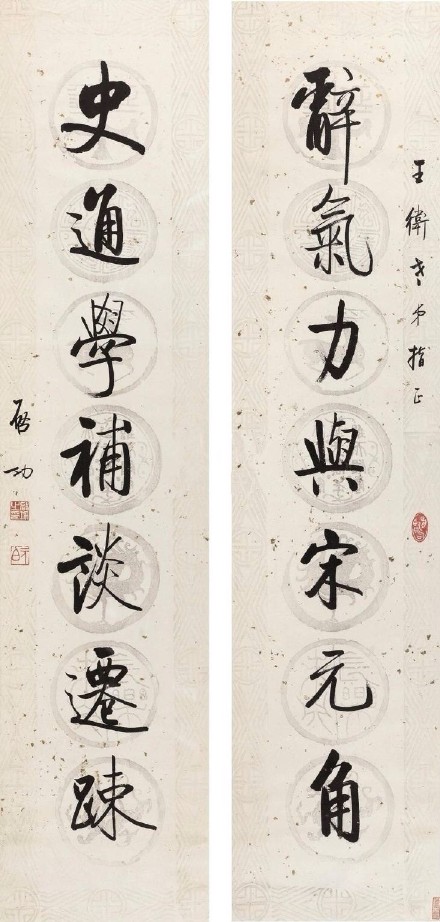 王衛老弟指正
辭氣力與宋元角
史通學補談遷疎
啟功